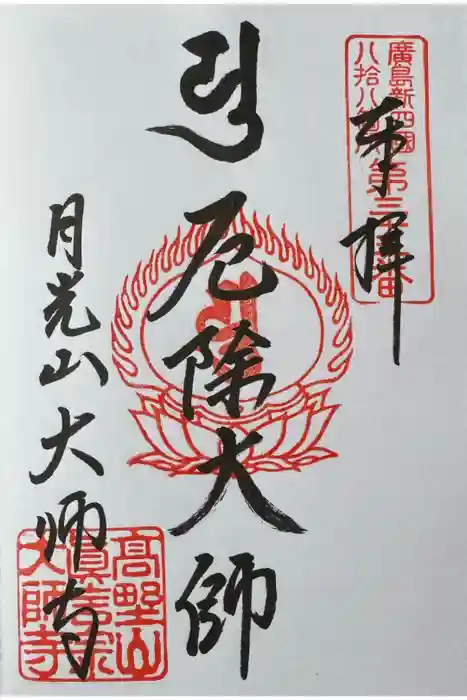 廣島新四國
八拾八ヶ所
奉拝
厄除大師
月光山大師寺
高野山
真言宗
大師寺